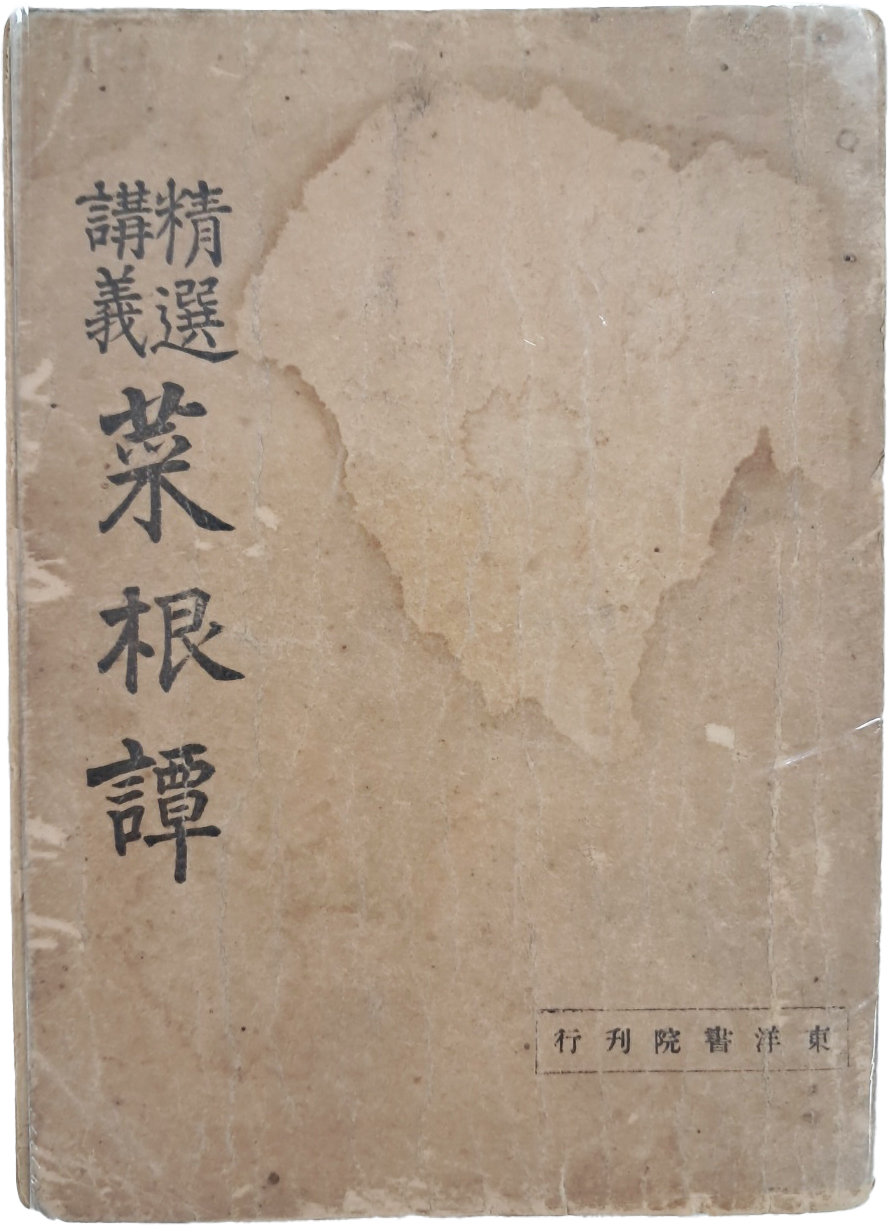 精選
講義
菜根譚
東洋書院刊行